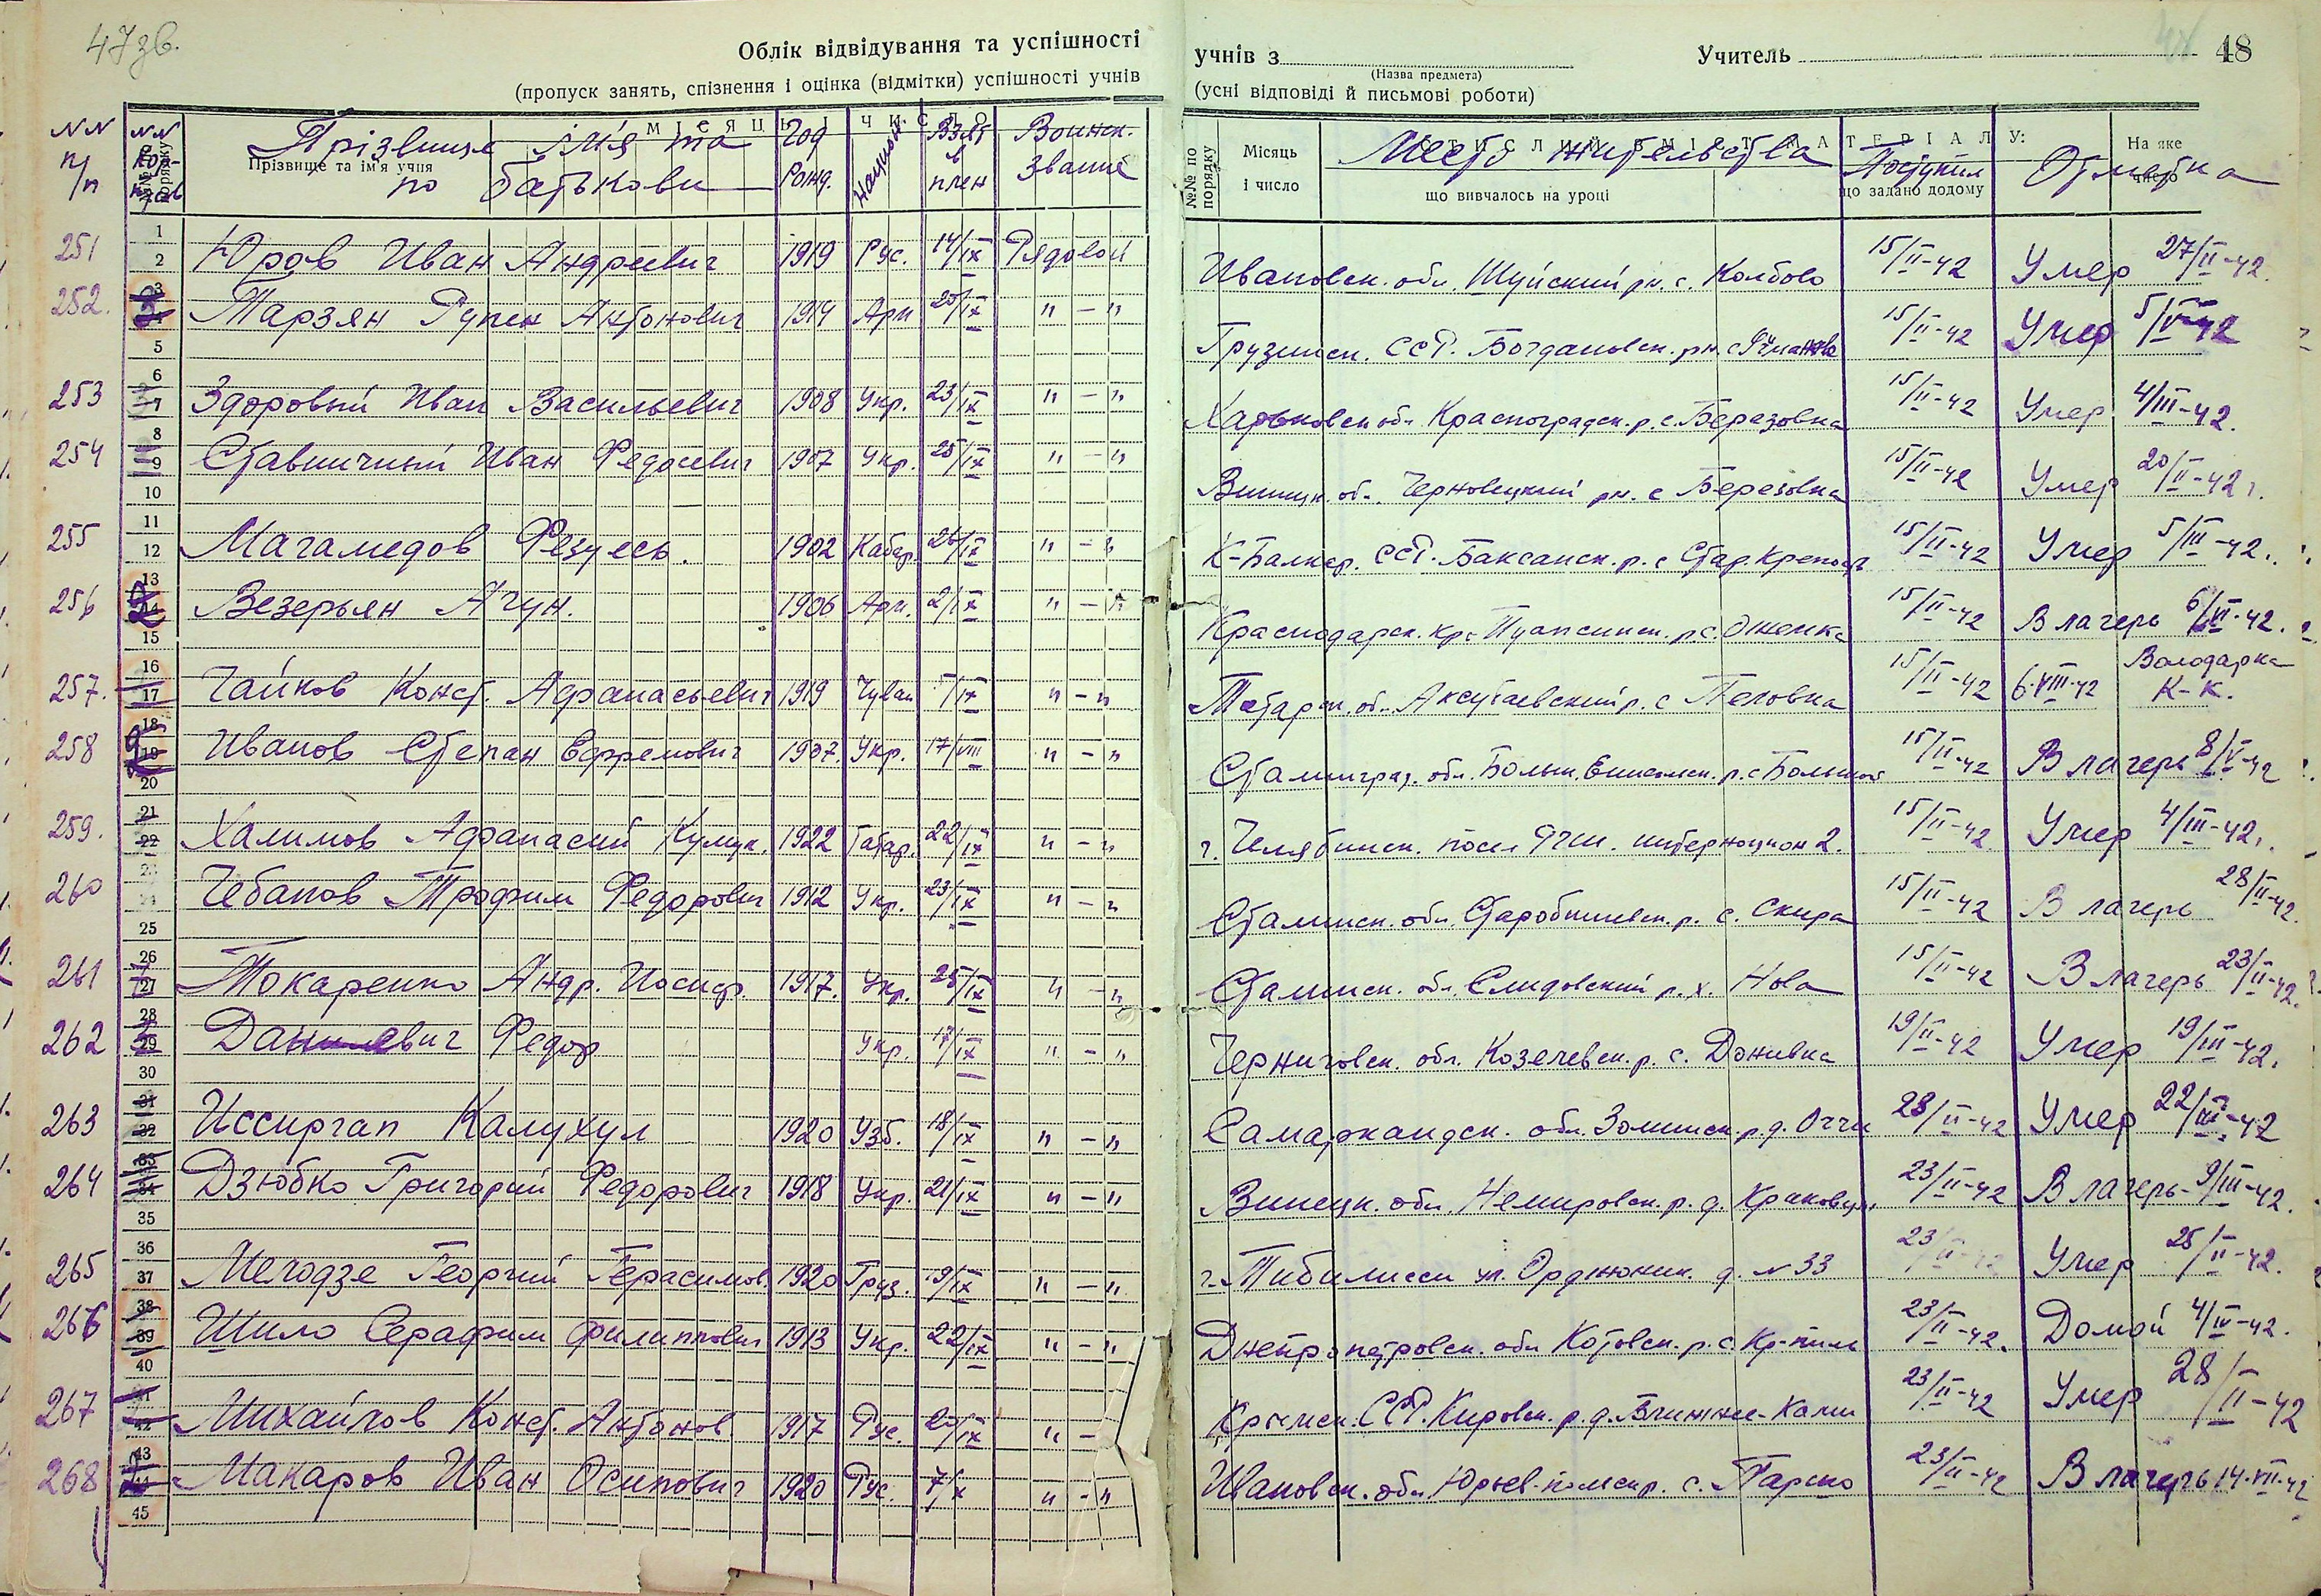 47зв.
Облік відвідування та успішності учнів з Учитель 48
(Назва предмета)
(пропуск занять, спізнення і оцінка (відмітки) успішності учнів (усні відповіді й письмові роботи)
місяць і число
стислий зміст матеріалу:
№№ по порядку Прізвище та ім'я учня
№№ по порядку Місяць і число що вивчалось на уроці що задано додому На яке число
NN п/п NN Прізвище ім'я та по батькови Год Рожд. национ. Взят в плен Воинск. звание Место жительства Поступил Отметка
251 Юров Иван Андреевич 1919 Рус. 14/IX Рядовой Ивановск. обл. Шуйский рн. с. Колбово 15/II-42 Умер 27/II-42.
252. Тарзян Рупен Антонович 1914 Арм 25/IX "-" Грузинск. ССР. Богдановск. рн. с 15/II-42 Умер 5/V-42
253 Здоровый Иван Васильевич 1908 Укр. 23/IX "-" Харьковск обл Красноградск. р. с. Березовка 15/II-42 Умер 4/III-42.
254 Ставничный Иван Федосевич 1907 Укр. 25/IX "-" Винницк. об. Черновецкий рн. с Березовка 15/II-42 Умер 20/II-42г.
255 Магамедов Фезуесь. 1902 Кабар. 26/IX "-" К-Балкар. ССР. Баксанск. р. с Стар. Крепость 15/II-42 Умер 5/III-42.
256 Везерьян Агун. 1906 Арм. 2/IX "-" Краснодарск. кр. Туапсинск. р с. 15/II-42 В лагерь 6/VI-42.
257. Чайков Конст. Афанасьевич 1919 Чуваш /IX "-" Татарск. об. Аксубаевский р. с 15/II-42 6.VIII-42 Володарка К-К.
258 Иванов Степан Ефремович 1907. Укр. 17/VIII "-" Сталинград. обл. Больш. р. с 15/II-42 В лагерь 8/V-42
259. Халимов Афанасий 1922 Татар. 22/IX "-" г. Челябинск. посел 2. 15/II-42 Умер 4/III-42.
260 Чебанов Трофим Федорович 1912 Укр. 23/IX "-" Сталинск. обл. Старобешевск. р. с. 15/II-42 В лагерь 28/II-42.
261 Токаренко Андр. Иосиф. 1917. Укр. 25/IX "-" Сталинск. обл. Селидовский р. х. Нова 15/II-42 В лагерь 23/II-42.
262 Данилевич Федор Укр. 17/IX "-" Черниговск. обл. Козелевск. р. с. 19/II-42 Умер 19/III-42.
263 Иссиргап Калухул 1920 Узб. 18/IX "-" Самаркандск. обл. Зоминск. р. д. 23/II-42 Умер 22/III-42
264 Дзюбко Григорий Федорович 1918 Укр. 21/IX "-" Винецк. обл. Немировск. р. д. 23/II-42 В лагерь-9/III-42.
265 Мегодзе Георгий Герасимов. 1920 Груз. 19/IX "-" г. Тибилисси ул. Орджоник. д. N 33 23/II-42 Умер 25/II-42.
266 Шило Серафим Филиппович 1913 Укр. 22/IX "-" Днепропетровск. обл Котовск. р. с. 23/II-42. Домой 4/IV-42.
267 Михайлов Конст. Антонов. 1917 Рус. 20/IX "- Крымск. ССР. Кировск. р. д. 23/II-42 Умер 28/II-42
268 Макаров Иван Осипович 1920 Рус. 7/X "-" Ивановск. обл. Юрьев-польск р. с. 23/II-42 В лагерь 14.VII-42